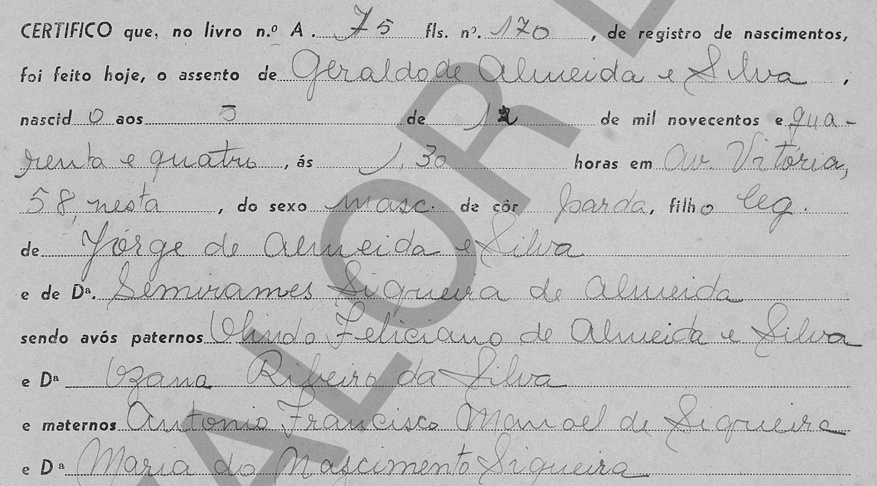 CERTIFICO que, no livro n.º A. 75 fls. nº. 170, de registro de nascimentos,
foi feito hoje, o assento de Geraldo de Almeida e Silva,
nascido aos 5 de 12 de mil novecentos e qua-
renta e quatro, ás 1,30 horas em Av. Vitória,
58, nesta, do sexo masc. de côr parda, filho leg.
de Jorge de Almeida e Silva
e de Dª. Semirames Siqueira de Almeida
sendo avós paternos Olindo Feliciano de Almeida e Silva
e Dª Ozana Ribeiro da Silva
e maternos Antonio Francisco Manoel de Siqueira
e Dª Maria do Nascimento Siqueira